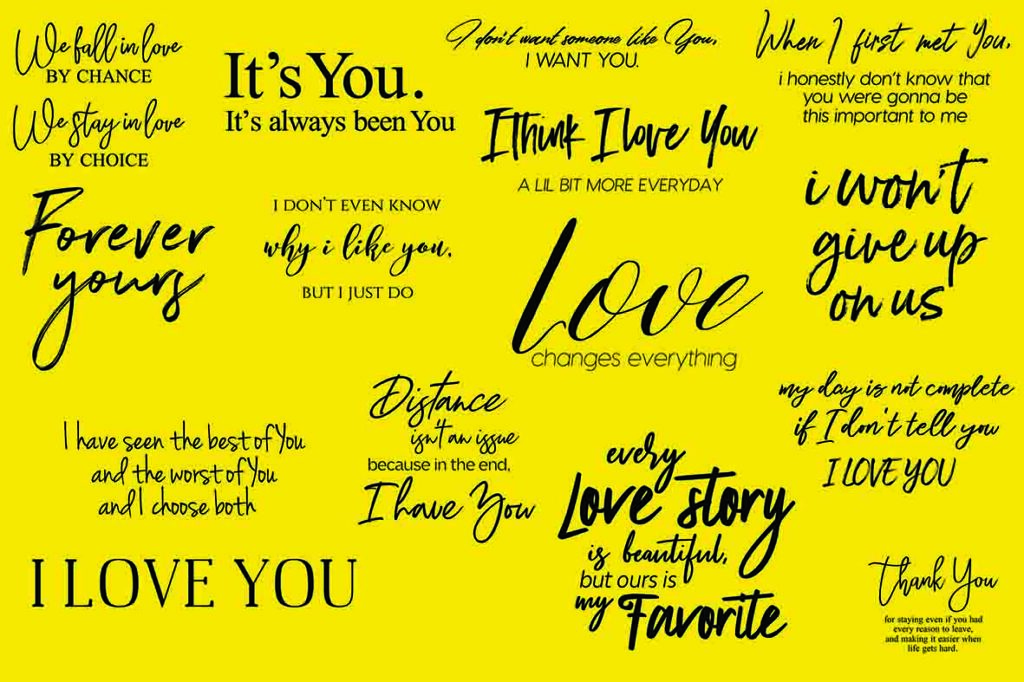 We fall in love
BY CHANCE
We stay in love
BY CHOICE
It's You.
It's always been You
I don't want someone like You,
I WANT YOU.
When I first met You,
i honestly don't know that
you were gonna be
this important to me
I think I love You
A LIL BIT MORE EVERYDAY
Forever
yours
I DON'T EVEN KNOW
why i like you,
BUT I JUST DO
Love
changes everything
i won't
give up
on us
I have seen the best of You
and the worst of You
and I choose both
Distance
isn't an issue
because in the end,
I have You
every
Love story
is beautiful,
but ours is
my Favorite
my day is not complete
if I don't tell you
I LOVE YOU
I LOVE YOU
Thank You
for staying even if you had
every reason to leave,
and making it easier when
life gets hard.